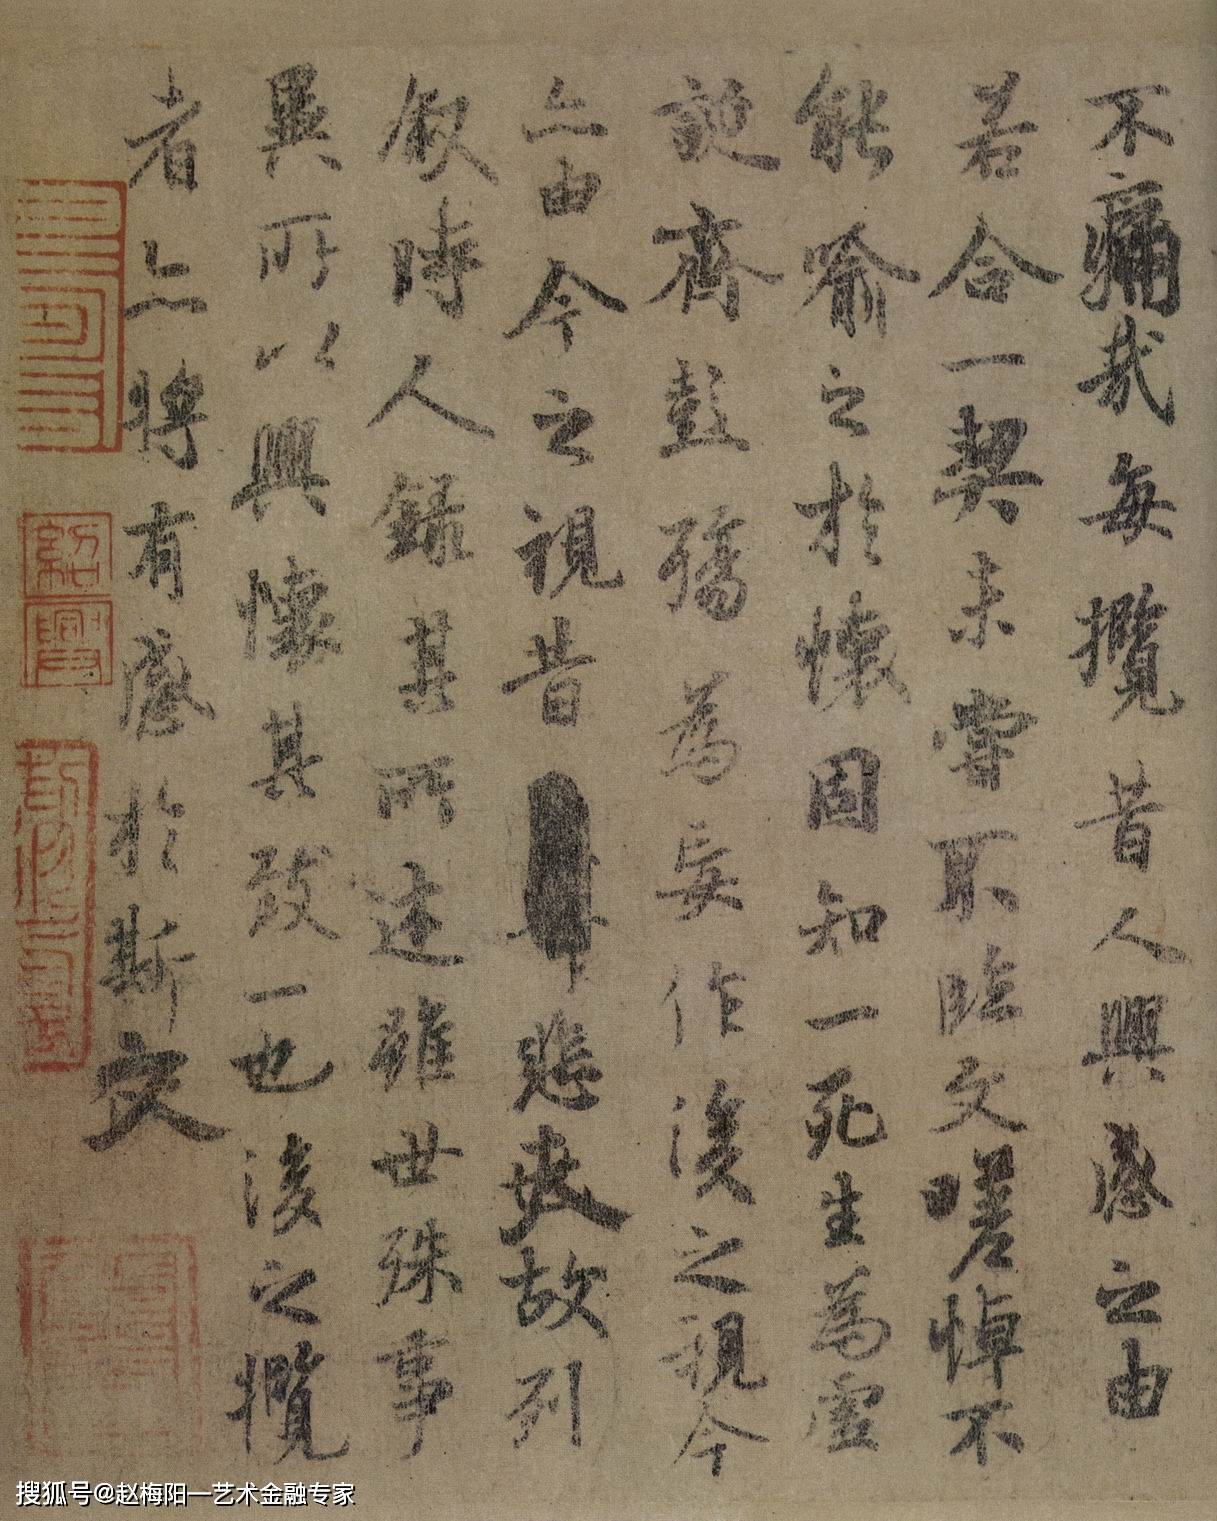 不痛哉每攬昔人興感之由
若合一契未嘗不臨文嗟悼不
能喻之於懷固知一死生為虛
誕齊彭殤為妄作後之視今
亦由今之視昔悲夫故列
叙時人錄其所述雖世殊事
異所以興懷其致一也後之攬
者亦將有感於斯文
紹興
搜狐号@赵梅阳一艺术金融专家